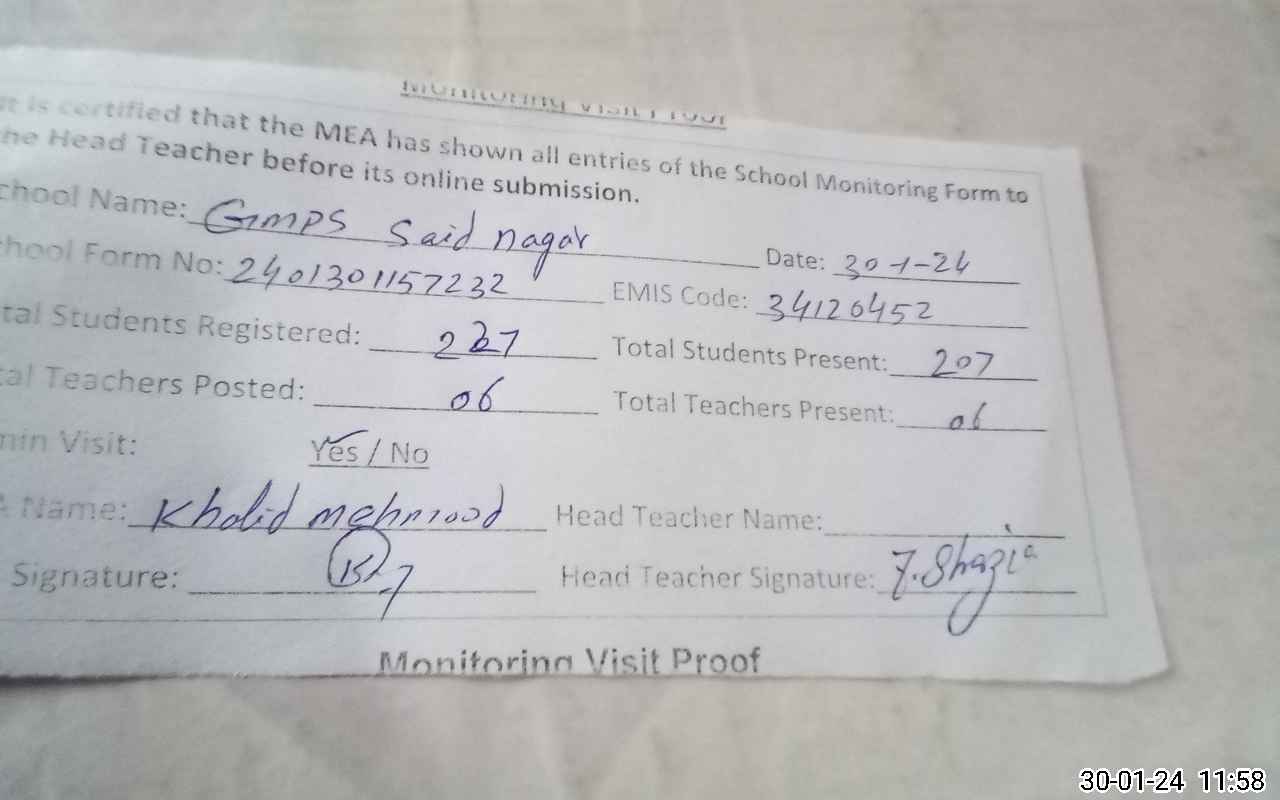 Monitoring Visit Proof
It is certified that the MEA has shown all entries of the School Monitoring Form to
the Head Teacher before its online submission.
chool Name: GMPS Said nagar Date: 30-1-24
hool Form No: 2401301157232 EMIS Code: 34120452
tal Students Registered: 227 Total Students Present: 207
tal Teachers Posted: 06 Total Teachers Present: 06
min Visit: Yes / No
A Name: Khalid mehmood Head Teacher Name:
Signature: Head Teacher Signature: F. Shazia
Monitoring Visit Proof
30-01-24 11:58